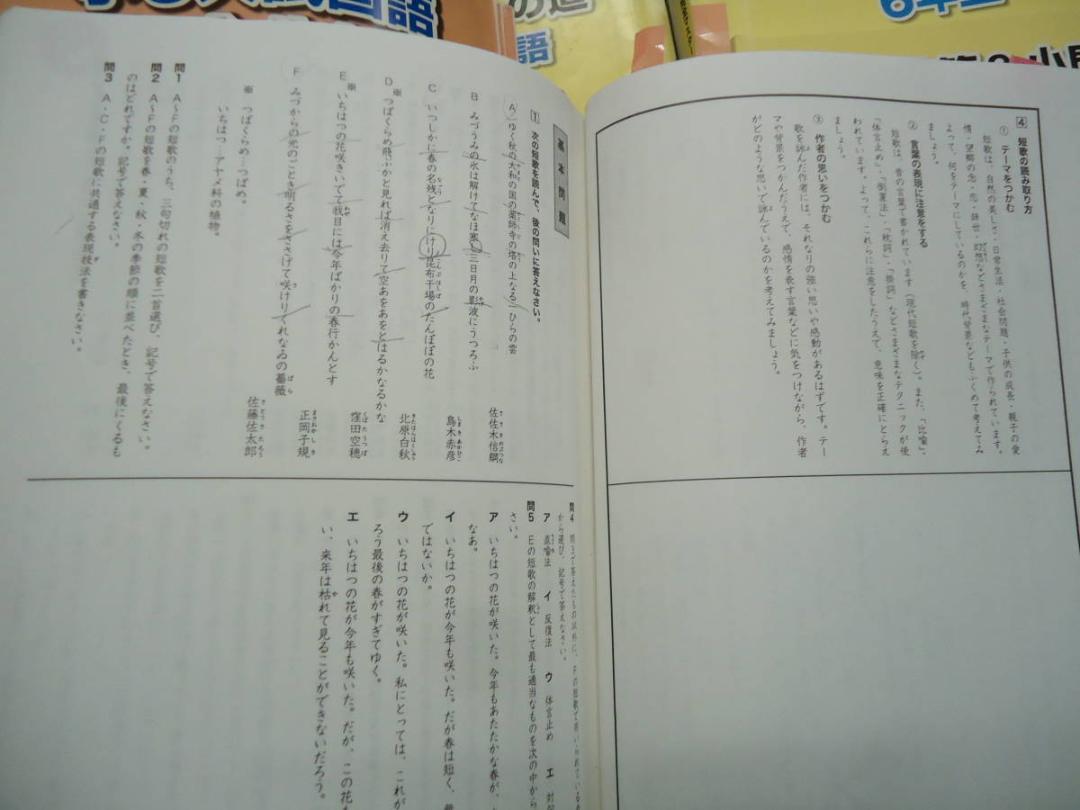 国語
の道
語
6年
4 短歌の読み取り方
① テーマをつかむ
短歌は、自然の美しさ・日常生活・社会問題・子供の成長・親子の愛
情・望郷の念・恋・辞世・幻想などさまざまなテーマで作られています。
よって、何をテーマにしているのかを、時代背景などもふくめて考えてみ
ましょう。
② 言葉の表現に注意をする
短歌は、昔の言葉で書かれています(現代短歌を除く)。また、「比喩」、
「体言止め」・「倒置法」・「枕詞」・「掛詞」などさまざまなテクニックが使
われています。よって、これらに注意をしたうえで、意味を正確にとらえ
ましょう。
③ 作者の思いをつかむ
歌を詠んだ作者には、それなりの強い思いや感動があるはずです。テー
マや背景をつかんだうえで、感情を表す言葉などに気をつけながら、作者
がどのような思いで詠んでいるのかを考えてみましょう。
基本問題
1 次の短歌を読んで、後の問いに答えなさい。
A ゆく秋の大和の国の薬師寺の塔の上なるひらの雲 佐佐木信綱
B みづうみの氷は解けてなほ寒し三日月の影波にうつろふ 島木赤彦
C いつしかに春の名残となりにけり昆布干場のたんぽぽの花 北原白秋
※D つばくらめ飛ぶかと見れば消え去りて空あをあをとはるかなるかな 窪田空穂
※E いちはつの花咲きいでて我目には今年ばかりの春行かんとす 正岡子規
F みづからの光のごとき明るさをささげて咲けりくれなゐの薔薇 佐藤佐太郎
※ つばくらめ…つばめ。
いちはつ…アヤメ科の植物。
問1 A〜Fの短歌のうち、三句切れの短歌を二首選び、記号で答えなさい。
問2 A〜Fの短歌を春・夏・秋・冬の季節の順に並べたとき、最後にくるも
のはどれですか。記号で答えなさい。
問3 A・C・Fの短歌に共通する表現技法を書きなさい。
問4 問3で答えたもの以外に、Fの短歌で用いられている
から選び、記号で答えなさい。
ア 直喩法 イ 反復法 ウ 体言止め エ 対
問5 Eの短歌の解釈として最も適当なものを次の中から
さい。
ア いちはつの花が咲いた。今年もあたたかな春が、
なあ。
イ いちはつの花が今年も咲いた。だが春は短く、
ではないか。
ウ いちはつの花が咲いた。私にとっては、これが
ろう最後の春がすぎてゆく。
エ いちはつの花が今年も咲いた。だが、この花も
い、来年は枯れて見ることができないだろう。